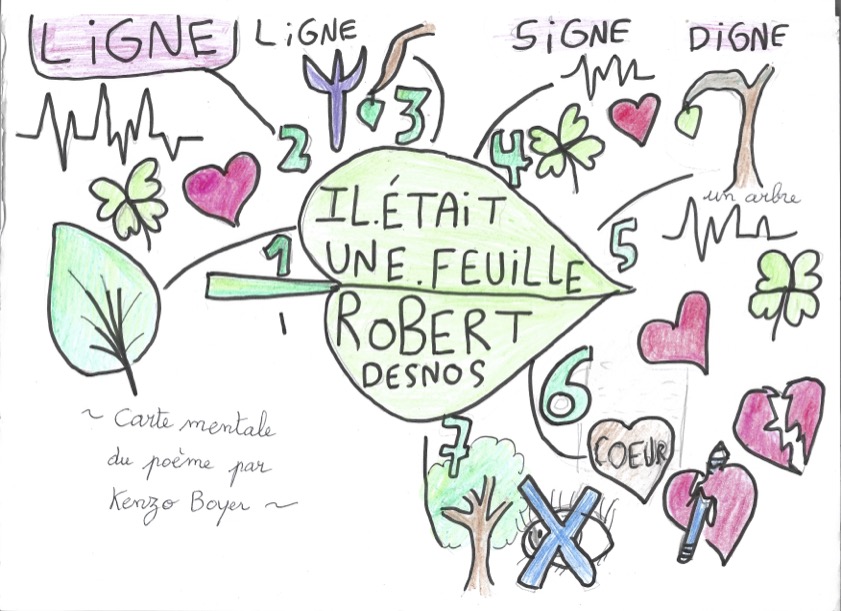 LiGNE
LiGNE
SiGNE
DiGNE
2
3
4
un arbre
1
5
IL.ÉTAiT
UNE.FEUiLLE
RoBERT
DESNOS
6
COEUR
7
~ Carte mentale
du poème par
Kenzo Boyer ~